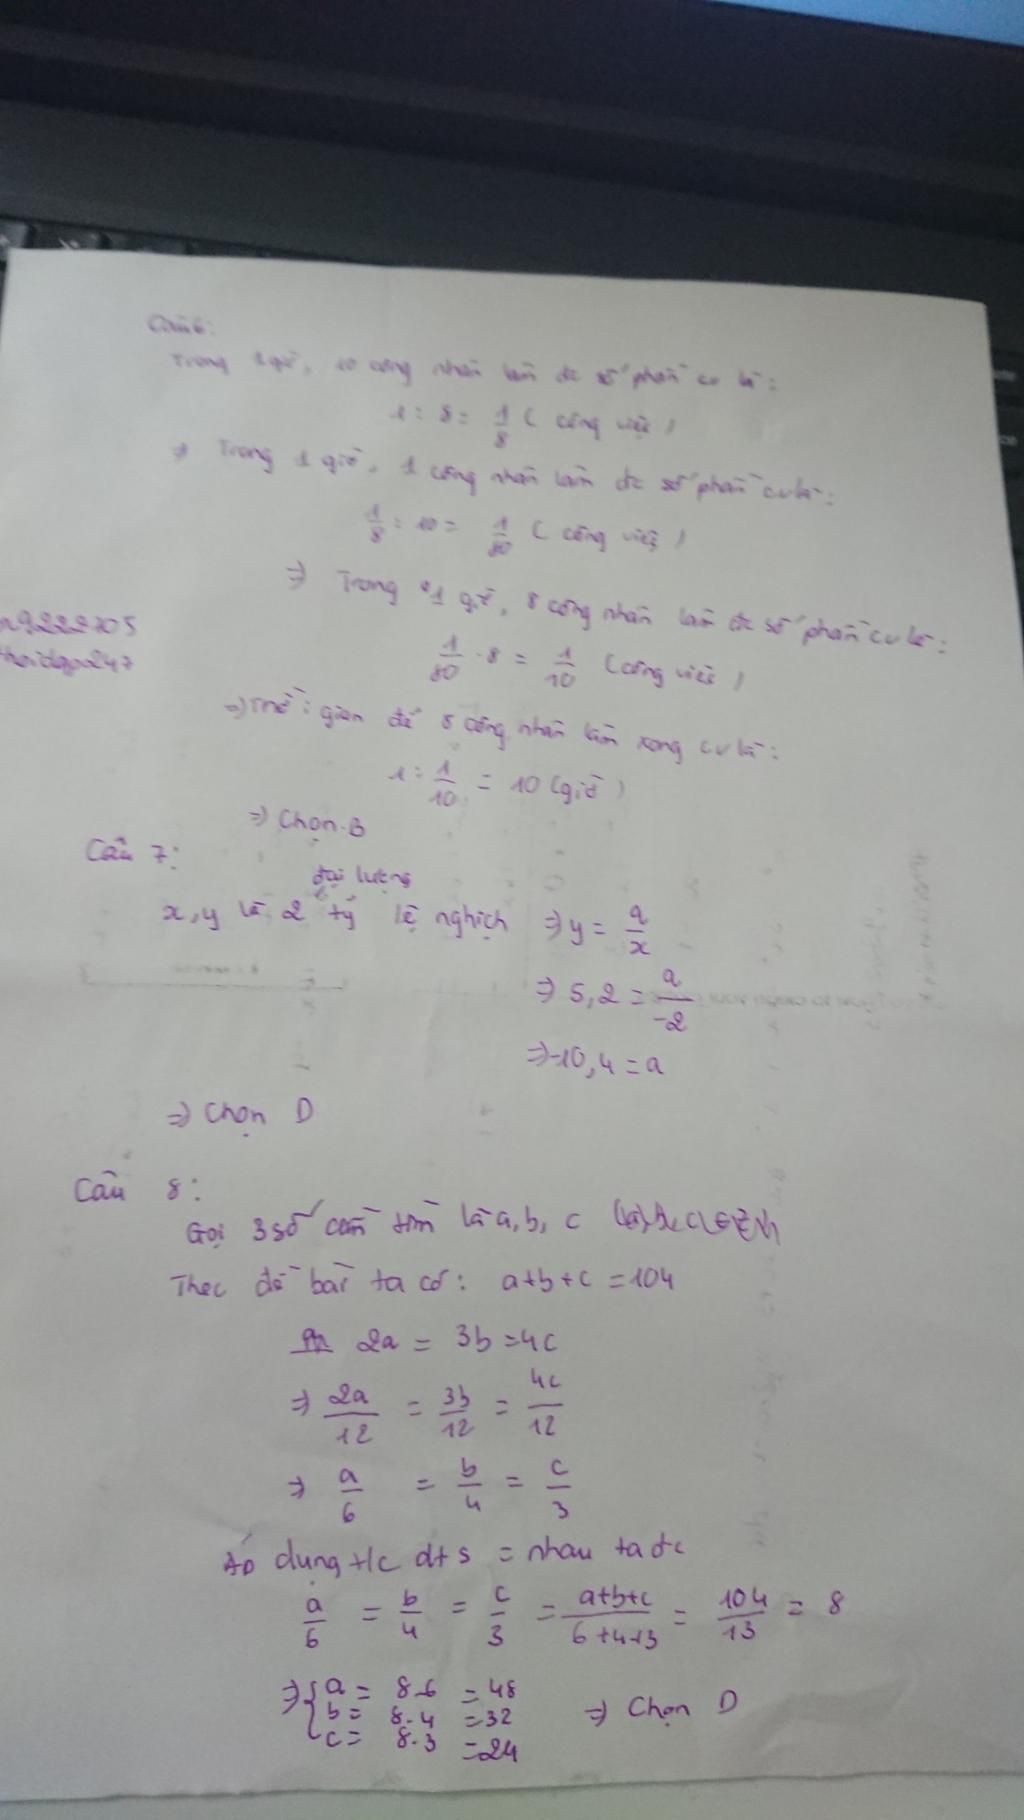 Câu 6:
Trong 1 giờ, 10 công nhân làm đc số phần cv là:
1 : 8 = 1/8 ( công việc )
⇒ Trong 1 giờ, 1 công nhân làm đc số phần cv là:
1/8 : 10 = 1/80 ( công việc )
⇒ Trong 1 giờ, 8 công nhân làm đc số phần cv là:
n9222705
thoidgoo247
1/80 . 8 = 1/10 (công việc)
⇒ Thời gian để 8 công nhân làm xong cv là:
1 : 1/10 = 10 (giờ)
⇒ Chọn B
Câu 7:
đại lượng
x, y là 2 tỷ lệ nghịch ⇒ y = a/x
⇒ 5,2 = a/-2
⇒ -10,4 = a
⇒ Chọn D
Câu 8:
Gọi 3 số cần tìm là a, b, c
Theo đề bài ta có: a+b+c = 104
2a = 3b = 4c
⇒ 2a/12 = 3b/12 = 4c/12
⇒ a/6 = b/4 = c/3
Áp dụng t/c dts = nhau ta đc
a/6 = b/4 = c/3 = a+b+c/6+4+3 = 104/13 = 8
⇒ { a = 8.6 = 48
b = 8.4 = 32 ⇒ Chọn D
c = 8.3 = 24